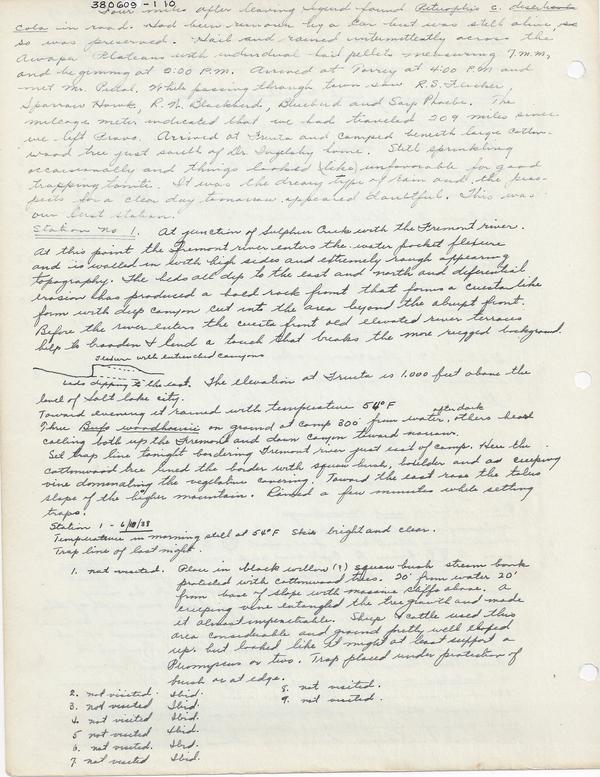 380609-110
Four miles after leaving Sigurd found Pituophis c. deserticola
cola in road. Had been runover by a car but was still alive, so
so was preserved. Hail and rained intermittently across the
Awapa Plateau with individual hail pellets measuring 7 m.m.
and beginning at 2:00 P.M. Arrived at Torrey at 4:00 P.M and
met Mr. While passing through town saw R.S. Flicker,
Sparrow Hawk, R.W. Blackbird, Bluebird and Say Phoebe. The
mileage meter indicated that we had traveled 209 miles since
we left Provo. Arrived at Fruita and camped beneith large cotton-
wood tree just south of Dr. Inglesby home. Still sprinkling
occasionally and things looked (like) unfavorable for good
trapping tonite. It was the dreary type of rain and the pros-
pects for a clear day tomorrow appeared doubtful. This was
our first station.
Station no 1. At junction of Sulphur Creek with the Fremont river.
At this point the Fremont river enters the water pocket flexure
and is walled in with high sides and extremely rough appearing
topography. The beds all dip to the east and north and diferential
erosion has produced a bold rock front that forms a cuesta like
form with deep canyon cut into the area beyond the abrupt front.
Before the river enters the cuesta front old elevated river terraces
help to broaden & lend a touch that breaks the more rugged background.
flexure with entrenched canyons
beds dipping to the east. The elevation at Fruita is 1,000 feet above the
level of Salt Lake City.
Toward evening it rained with temperature 54°F
after dark
Three Bufo woodhousii on ground at camp 300' from water, others heard
calling both up the Fremont and down canyon toward narrows.
Set trap line tonight bordering Fremont river just east of camp. Here the
cottonwood tree lined the border with squaw bush, boxelder and a creeping
vine dominating the vegetative covering. Toward the east rose the talus
slope of the higher mountain. Rained a few minutes while setting
traps.
Station 1 - 6/10/38
Temperature in morning still at 54°F Skies bright and clear.
Trap line of last night.
1. not visited. Place in black willow (?) squaw bush stream bank
protected with cottonwood trees. 20' from water 20'
from base of slope with massive cliffs above. A
creeping vine entangled the tree growth and made
it almost impenetrable. Sheep & cattle used this
area considerable and ground pretty well sloped
up. but looked like it might at least support a
Peromyscus or two. Trap placed under protection of
bush or at edge.
2. not visited. Ibid.
3. not visited Ibid.
4. not visited Ibid.
5. not visited Ibid.
6. not visited. Ibid.
7. not visited Ibid.
8. not visited.
9. not visited.